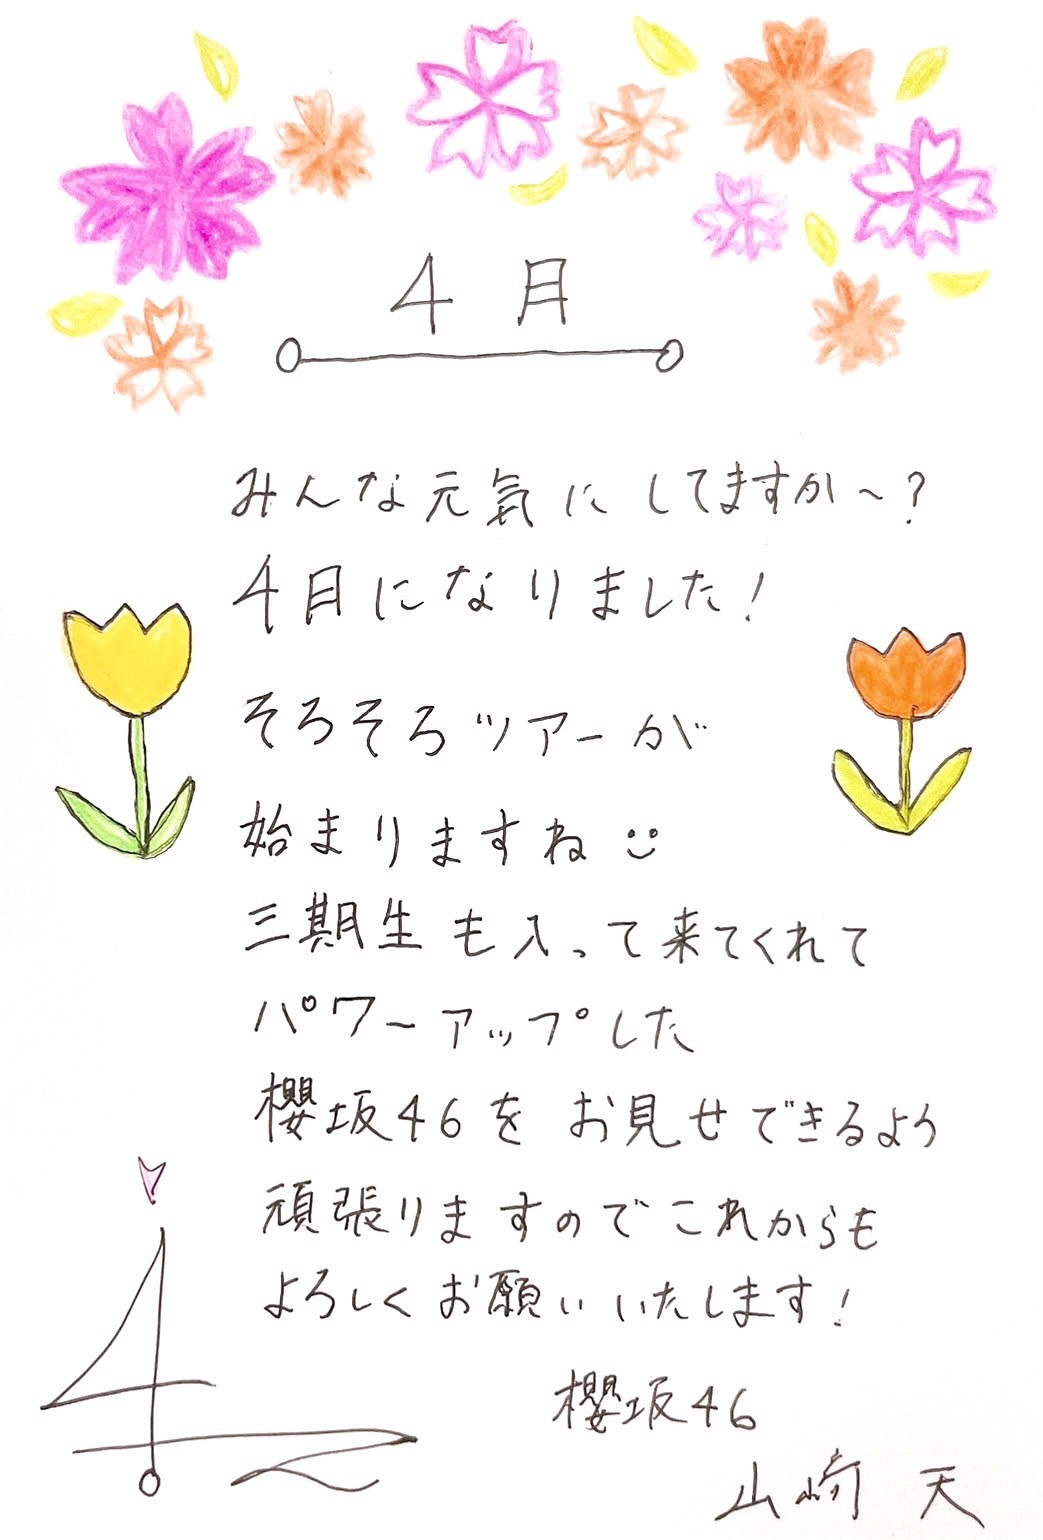 4月
みんな元気にしてますか〜?
4月になりました!
そろそろツアーが
始まりますね
三期生も入って来てくれて
パワーアップした
櫻坂46をお見せできるよう
頑張りますのでこれからも
よろしくお願いいたします!
櫻坂46
山﨑 天